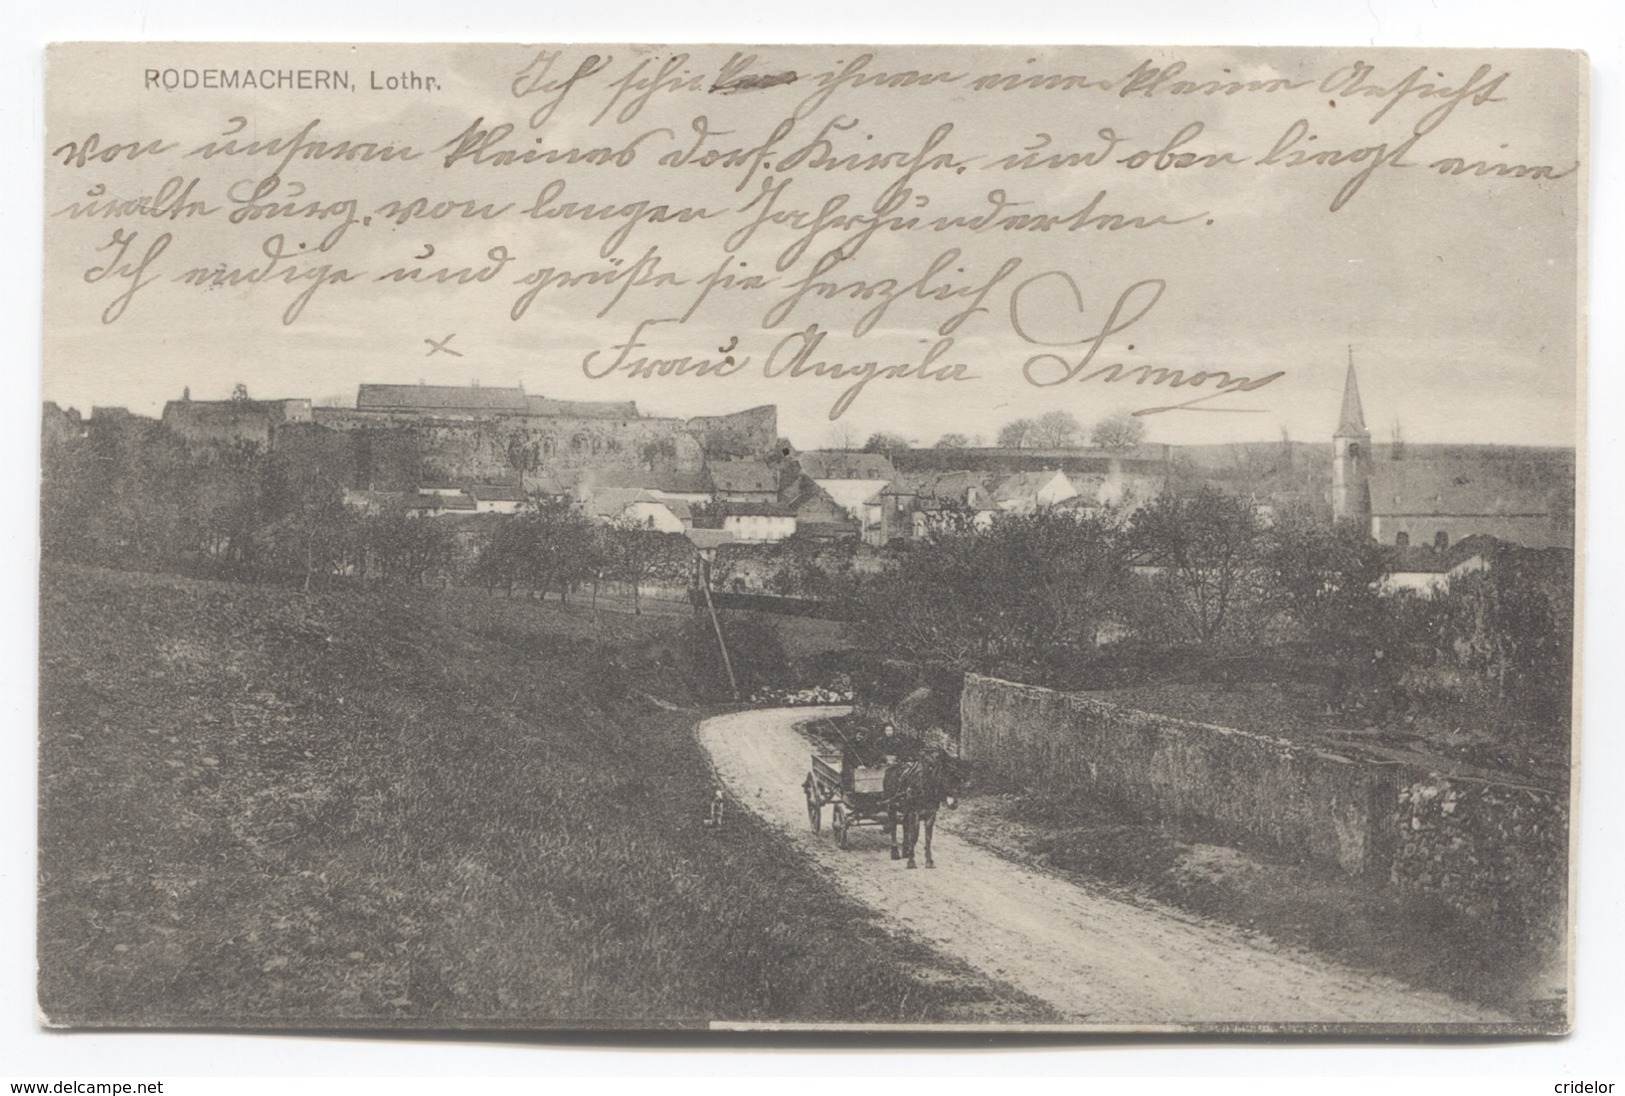 RODEMACHERN, Lothr.
Ich schicke ihnen eine kleine Ansicht
von unserm kleines dorf. Kirche. und oben liegt eine
uralte Burg. von langen Jahrhunderten.
Ich endige und grüße sie herzlich
Frau Angela Simon
x
www.delcampe.net
cridelor